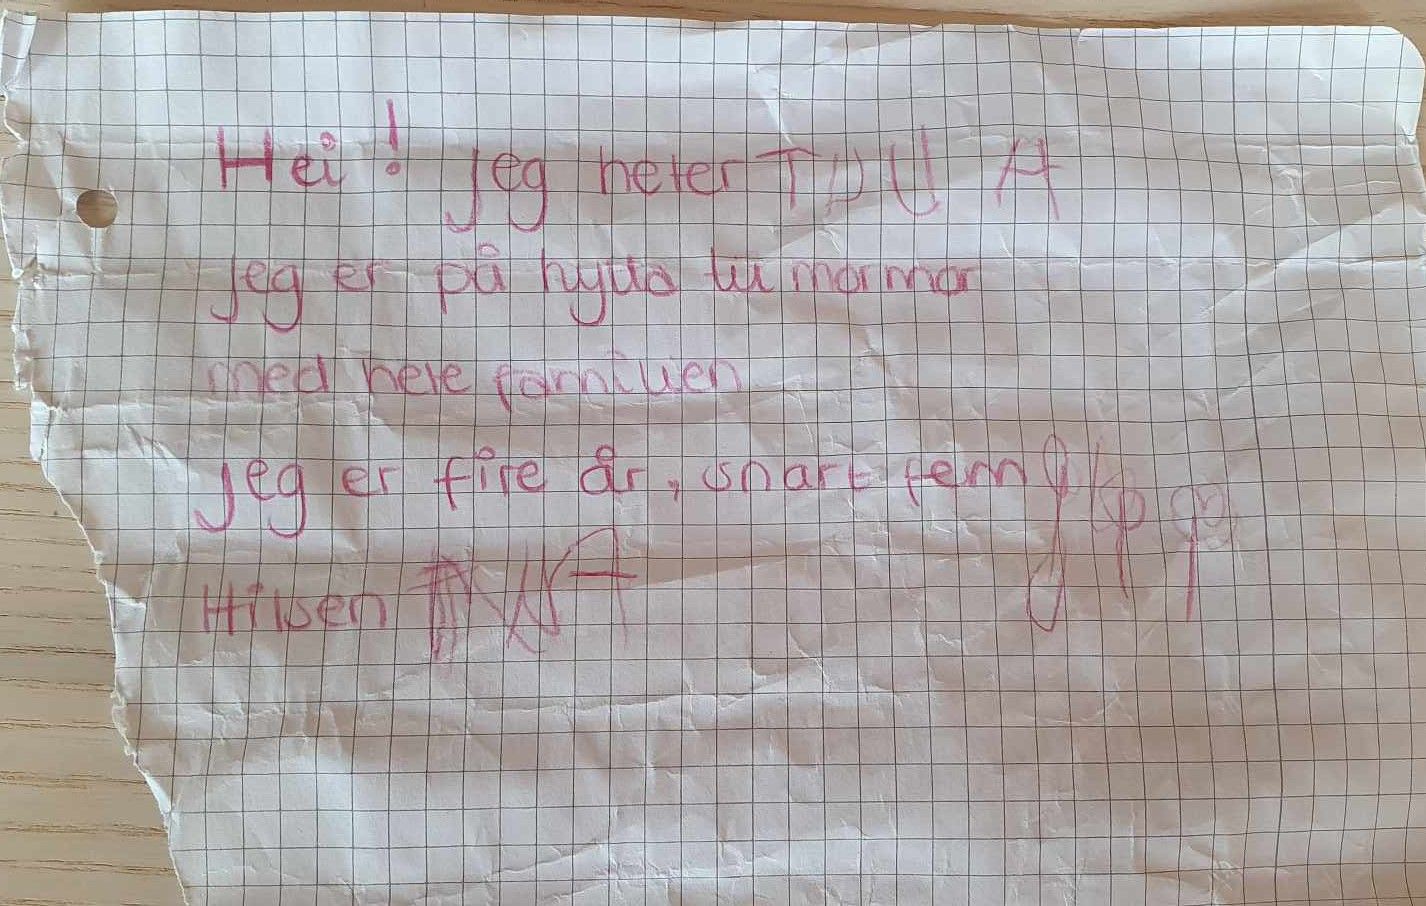 Hei! Jeg heter
Jeg er på hytta til mormor
med hele familien
Jeg er fire år, snart fem
Hilsen